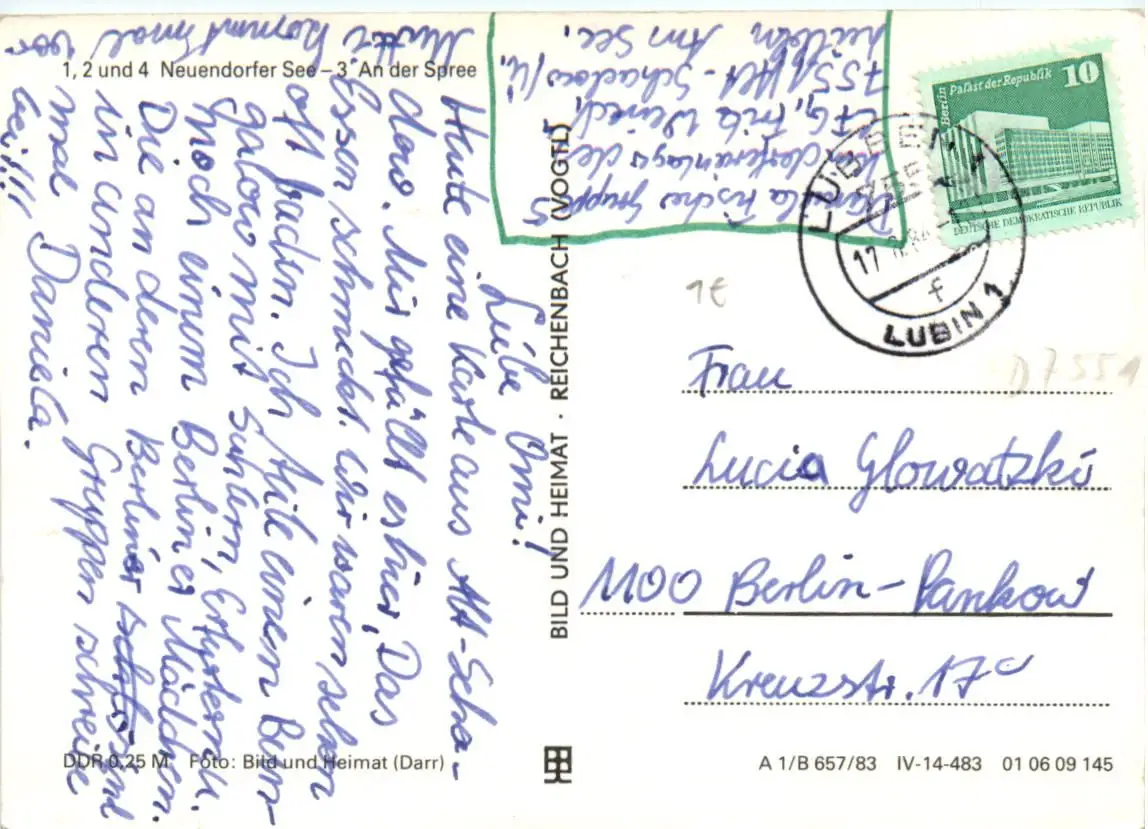 1, 2 und 4 Neuendorfer See – 3 An der Spree
Liebe Omi!
Heute eine Karte aus Alt-Scha-
dow. Mir gefällt es hier, Das
Essen schmeckt. Wir waren schon
oft baden. Ich teile einen Bun-
galow mit Suhlern, Erfurtern u.
noch einem Berliner Mädchen.
Die anderen Berliner sind
in anderen Gruppen schreibe
mal Daniela.
Mutti kommt mal vor-
bei!!!
Daniela Fischer Gruppe 5
Kinderferienlager der
EFG, Fritz Weineck,
7551 Alt-Schadow/Ü.
Lübben Am See,
BILD UND HEIMAT · REICHENBACH (VOGTL)
Berlin Palast der Republik 10
DEUTSCHE DEMOKRATISCHE REPUBLIK
LÜBBEN 1
LUBIN 1
f
1€
D7551
Frau
Lucia Glowatzki
1100 Berlin-Pankow
Kreuzstr. 17c
DDR 0,25 M Foto: Bild und Heimat (Darr)
A 1/B 657/83 IV-14-483 01 06 09 145